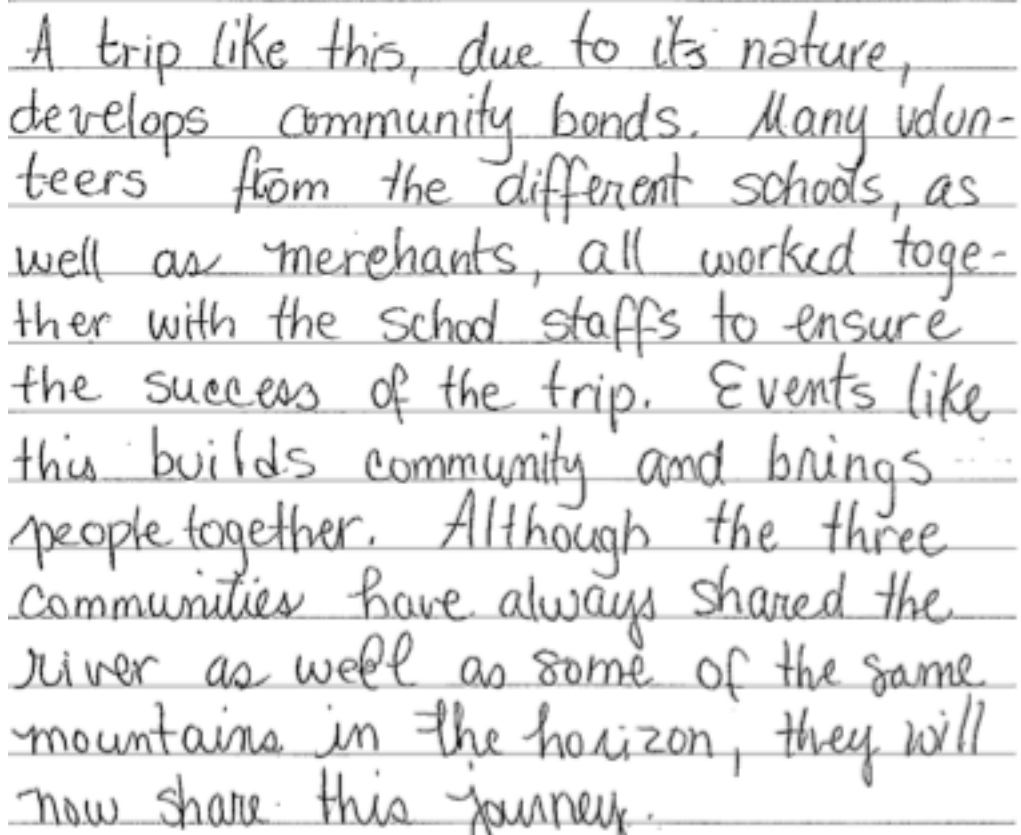 A trip like this, due to its nature,
develops community bonds. Many volun-
teers from the different schools, as
well as merchants, all worked toge-
ther with the school staffs to ensure
the success of the trip. Events like
this builds community and brings
people together. Although the three
communities have always shared the
river as well as some of the same
mountains in the horizon, they will
now share this journey.